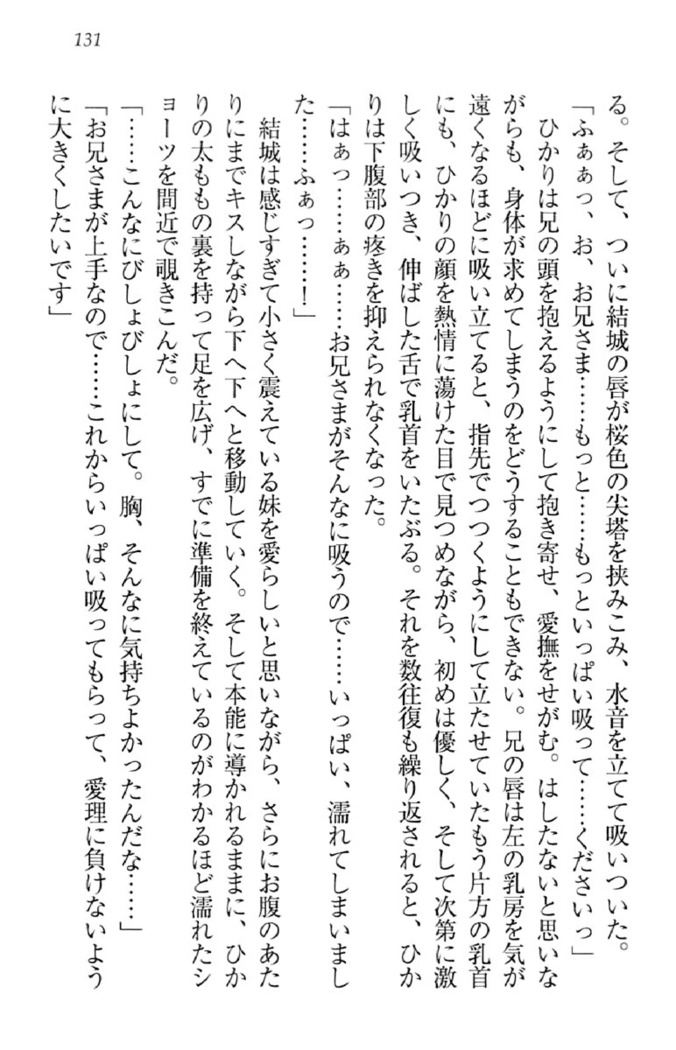 131
る。そして、ついに結城の唇が桜色の尖塔を挟みこみ、水音を立てて吸いついた。
「ふぁぁっ、お、お兄さま……もっと……もっといっぱい吸って……くださいっ」
ひかりは兄の頭を抱えるようにして抱き寄せ、愛撫をせがむ。はしたないと思いな
がらも、身体が求めてしまうのをどうすることもできない。兄の唇は左の乳房を気が
遠くなるほどに吸い立てると、指先でつつくようにして立たせていたもう片方の乳首
にも、ひかりの顔を熱情に蕩けた目で見つめながら、初めは優しく、そして次第に激
しく吸いつき、伸ばした舌で乳首をいたぶる。それを数往復も繰り返されると、ひか
りは下腹部の疼きを抑えられなくなった。
「はぁっ……ぁぁ……お兄さまがそんなに吸うので……いっぱい、濡れてしまいまし
た……ふぁっ……！」
結城は感じすぎて小さく震えている妹を愛らしいと思いながら、さらにお腹のあた
りにまでキスしながら下へ下へと移動していく。そして本能に導かれるままに、ひか
りの太ももの裏を持って足を広げ、すでに準備を終えているのがわかるほど濡れたシ
ョーツを間近で覗きこんだ。
「……こんなにびしょびしょにして。胸、そんなに気持ちよかったんだな……」
「お兄さまが上手なので……これからいっぱい吸ってもらって、愛理に負けないよう
に大きくしたいです」